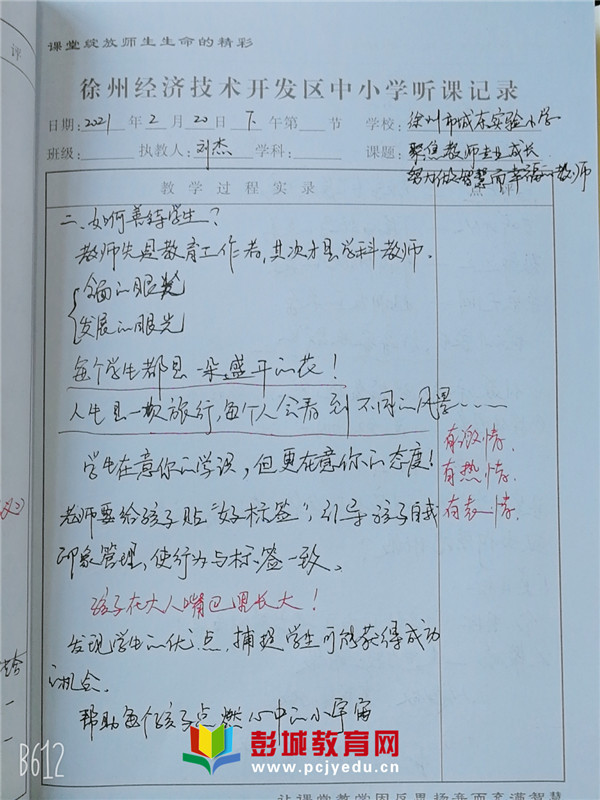 课堂绽放师生生命的精彩
评
徐州经济技术开发区中小学听课记录
日期:2021年2月20日下午第 节 学校:徐州市城东实验小学
班级: 执教人:刘杰 学科: 课题:聚焦教师专业成长
努力做智慧而幸福的教师
教学过程实录
点评
二、如何善待学生?
教师先是教育工作者,其次才是学科教师。
全面的眼光
发展的眼光
每个学生都是一朵盛开的花!
人生是一次旅行,每个人会看到不同的风景……
有激情.
学生在意你的学识,但更在意你的态度!
有热情.
老师要给孩子贴“好标签”,引导孩子自我
有表情.
印象管理,使行为与标签一致、
孩子在大人嘴巴里长大!
发现学生的优点,捕捉学生可能获得成功
的机会.
帮助每个孩子点燃心中的小宇宙
B612
彭城教育网
www.pcjyedu.cn
让课堂教学因反思扬弃而充满智慧